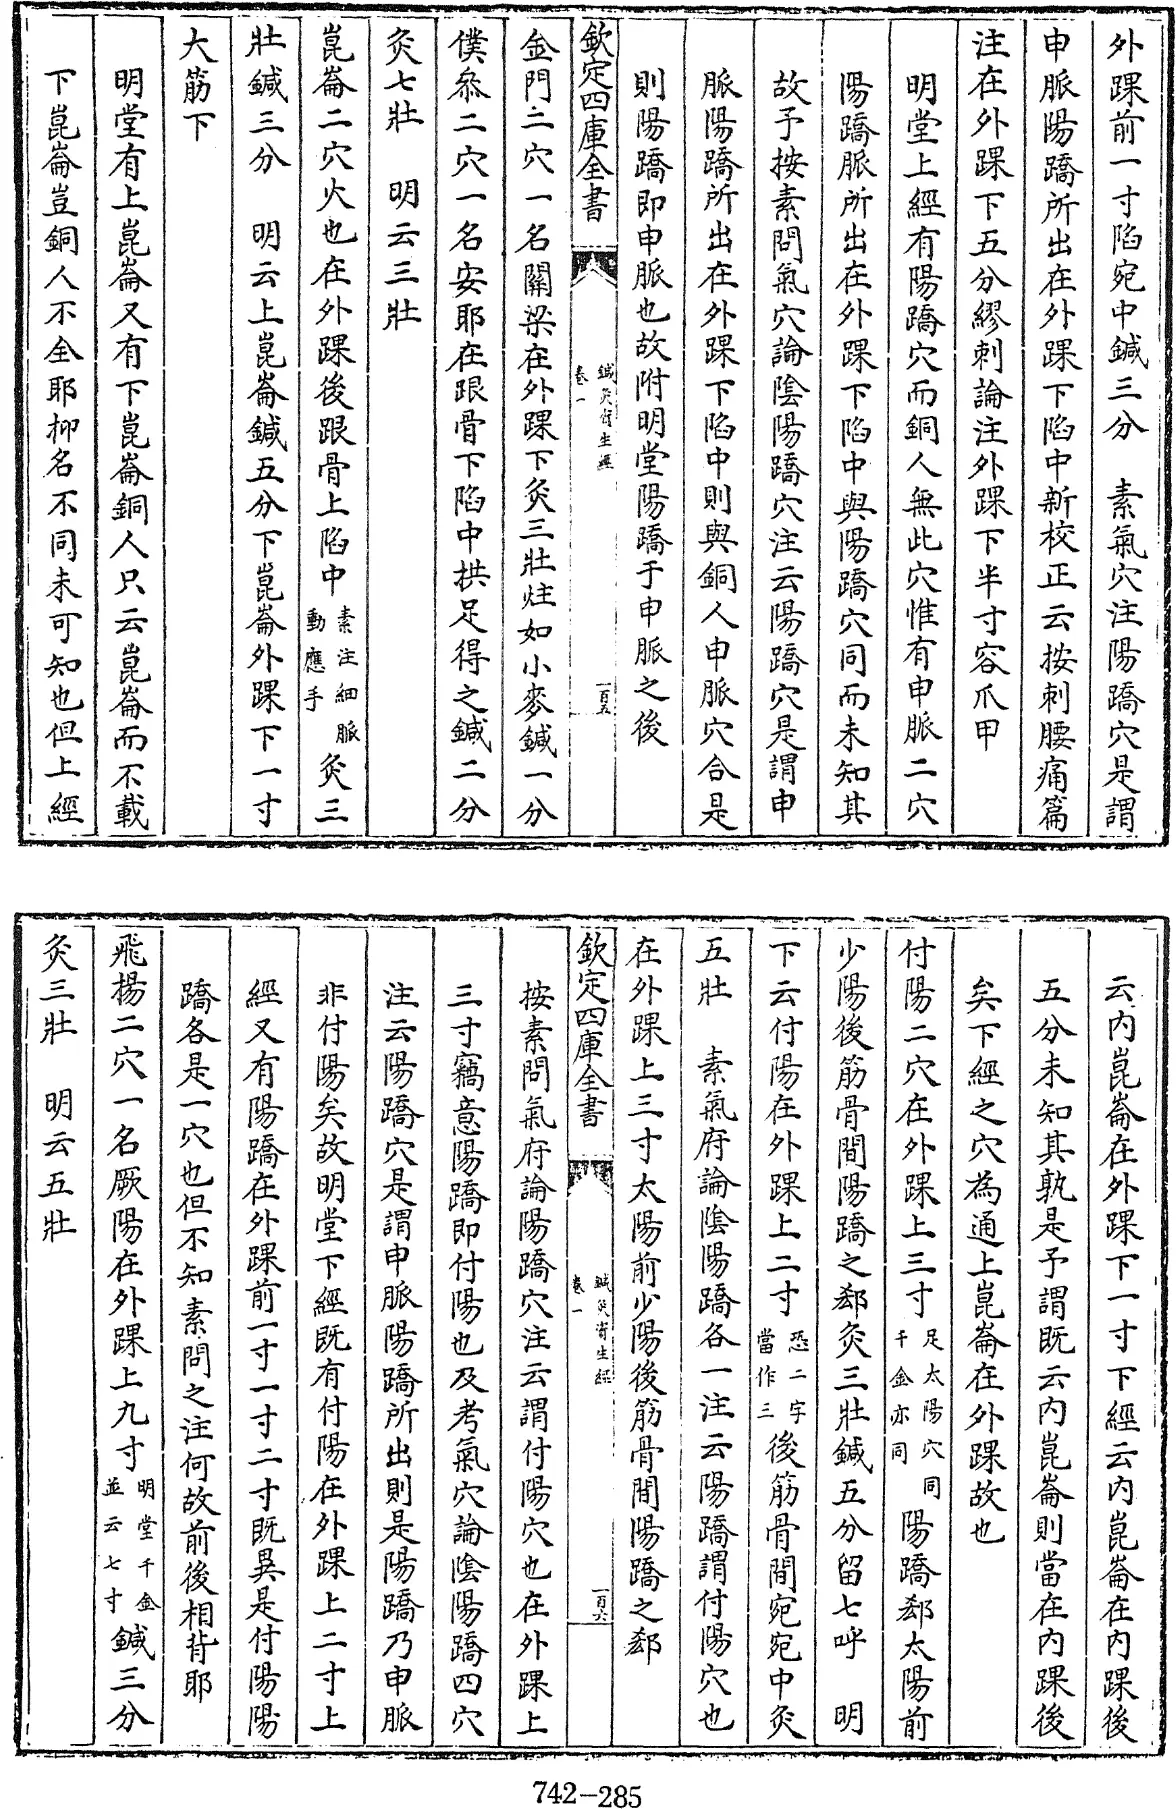 外踝前一寸陷宛中鍼三分　素氣穴注陽蹻穴是謂
申脈陽蹻所出在外踝下陷中新校正云按刺腰痛篇
注在外踝下五分繆刺論注外踝下半寸容爪甲
明堂上經有陽蹻穴而銅人無此穴惟有申脈二穴
陽蹻脈所出在外踝下陷中與陽蹻穴同而未知其
故予按素問氣穴論陰陽蹻穴注云陽蹻穴是謂申
脈陽蹻所出在外踝下陷中則與銅人申脈穴合是
則陽蹻即申脈也故附明堂陽蹻于申脈之後
欽定四庫全書
鍼灸資生經
卷一
一百五
金門二穴一名關梁在外踝下灸三壯炷如小麥鍼一分
僕叅二穴一名安耶在跟骨下陷中拱足得之鍼二分
灸七壯　明云三壯
崑崙二穴火也在外踝後跟骨上陷中素注細脈動應手灸三
壯鍼三分　明云上崑崙鍼五分下崑崙外踝下一寸
大筋下
明堂有上崑崙又有下崑崙銅人只云崑崙而不載
下崑崙豈銅人不全耶抑名不同未可知也但上經
云内崑崙在外踝下一寸下經云内崑崙在内踝後
五分未知其孰是予謂既云内崑崙則當在内踝後
矣下經之穴為通上崑崙在外踝故也
付陽二穴在外踝上三寸足太陽穴同千金亦同陽蹻郄太陽前
少陽後筋骨間陽蹻之郄灸三壯鍼五分留七呼　明
下云付陽在外踝上二寸恐二字當作三後筋骨間宛宛中灸
五壯　素氣府論陰陽蹻各一注云陽蹻謂付陽穴也
在外踝上三寸太陽前少陽後筋骨間陽蹻之郄
欽定四庫全書
鍼灸資生經
卷一
一百六
按素問氣府論陽蹻穴注云謂付陽穴也在外踝上
三寸竊意陽蹻即付陽也及考氣穴論陰陽蹻四穴
注云陽蹻穴是謂申脈陽蹻所出則是陽蹻乃申脈
非付陽矣故明堂下經既有付陽在外踝上二寸上
經又有陽蹻在外踝前一寸一寸二寸既異是付陽陽
蹻各是一穴也但不知素問之注何故前後相背耶
飛揚二穴一名厥陽在外踝上九寸明堂千金並云七寸鍼三分
灸三壯　明云五壯
742-285